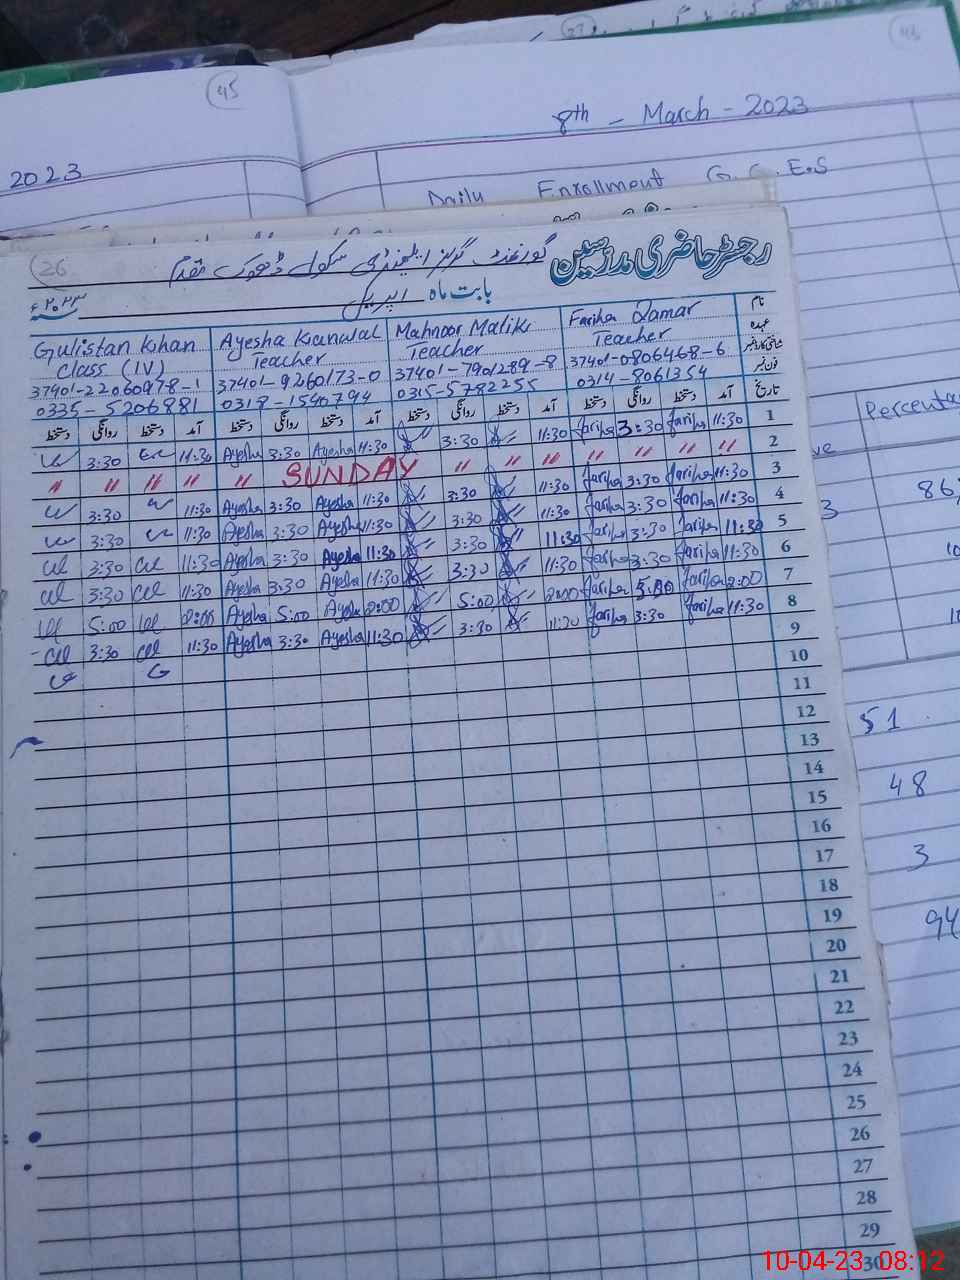 45
43
8th - March - 2023
2023
Daily Enrollment G.G.E.S
26
رجسٹر حاضری مدرسین گورنمنٹ گرلز ایلیمنٹری سکول ڈھوک مقدم
بابت ماہ اپریل ۲۰۲۳ء
نام Fariha Qamar Mahnoor Malik Ayesha Kanwal Gulistan Khan
عہدہ Teacher Teacher Teacher Class (IV)
شناختی کارڈ نمبر 37401-0806468-6 37401-7901289-8 37401-9260173-0 37401-22060978-1
فون نمبر 0314-8061354 0315-5782255 0318-1540794 0335-5206881
تاریخ آمد دستخط روانگی دستخط آمد دستخط روانگی دستخط آمد دستخط روانگی دستخط آمد دستخط روانگی دستخط
1 11:30 fariha 3:30 fariha 11:30 3:30 11:30 Ayesha 3:30 Ayesha 11:30 3:30
2 " " " " " " SUNDAY " " " " "
3 11:30 fariha 3:30 fariha 11:30 3:30 11:30 Ayesha 3:30 Ayesha 11:30 3:30
4 11:30 fariha 3:30 fariha 11:30 3:30 11:30 Ayesha 3:30 Ayesha 11:30 3:30
5 11:30 fariha 3:30 fariha 11:30 3:30 11:30 Ayesha 3:30 Ayesha 11:30 cl 3:30 cl
6 11:30 fariha 3:30 fariha 11:30 3:30 11:30 Ayesha 3:30 Ayesha 11:30 cl 3:30 cl
7 2:00 fariha 5:00 fariha 2:00 5:00 2:00 Ayesha 5:00 Ayesha 5:00
8 11:30 fariha 3:30 fariha 11:30 3:30 11:30 Ayesha 3:30 Ayesha 11:30 cl 3:30 cl
9
10
11
12
13
14
15
16
17
18
19
20
21
22
23
24
25
26
27
28
29
30
Percenta
ve
3
86
10
51
48
3
94
10-04-23 08:12